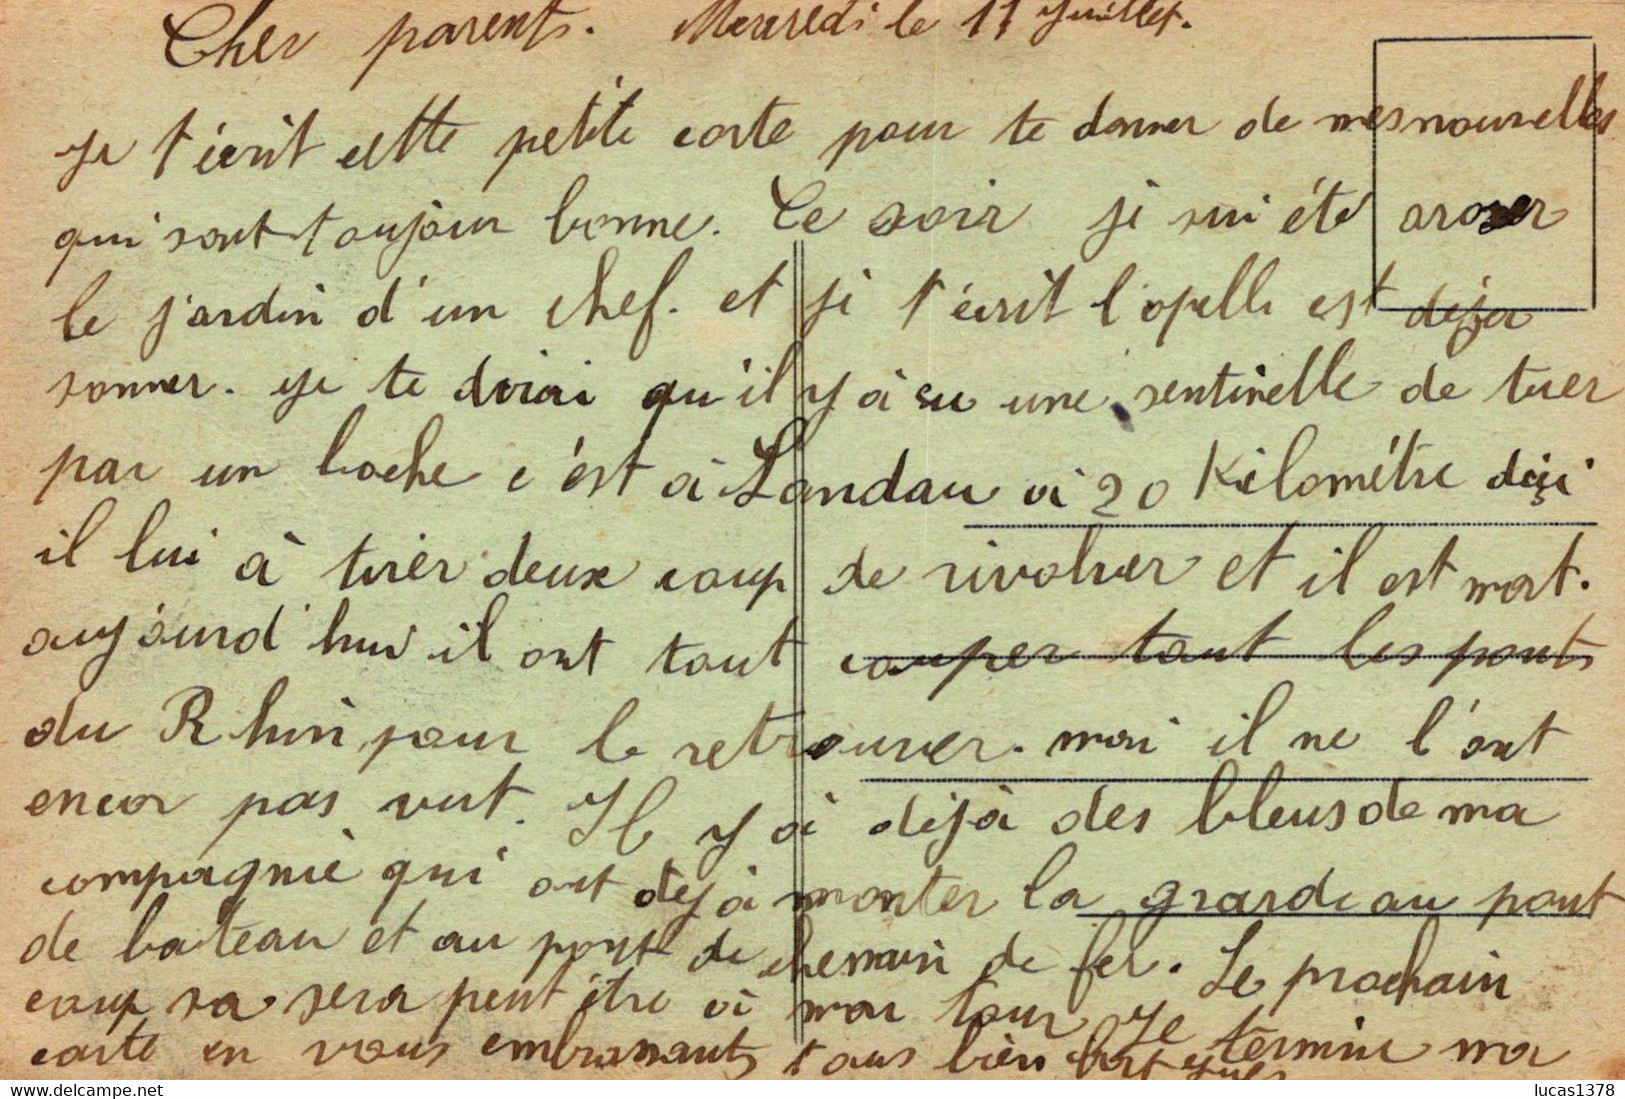 Cher parents. Mercredi le 11 Juillet.
Je t'écrit cette petite carte pour te donner de mes nouvelles
qui sont toujour bonne. Ce soir je sui été aroser
le jardin d'un chef. et je t'écrit l'apelle est deja
sonner. Je te dirai qu'il y à eu une sentinelle de tuer
par un boche c'est à Landau à 20 Kilomètre diçi
il lui à tirér deux coup de rivolver et il est mort.
aujourd'hui il ont tout couper tout les ponts
du Rhin pour le retrouver. mai il ne l'ont
encor pas vut. Il y à déjà des bleus de ma
compagnie qui ont dejà monter la garde au pont
de bateau et au pont de chemain de fer. Le prochain
coup sa sera peut être à moi tour Je termine ma
carte en vous embrassants tous bien fort Yves
lucas1378